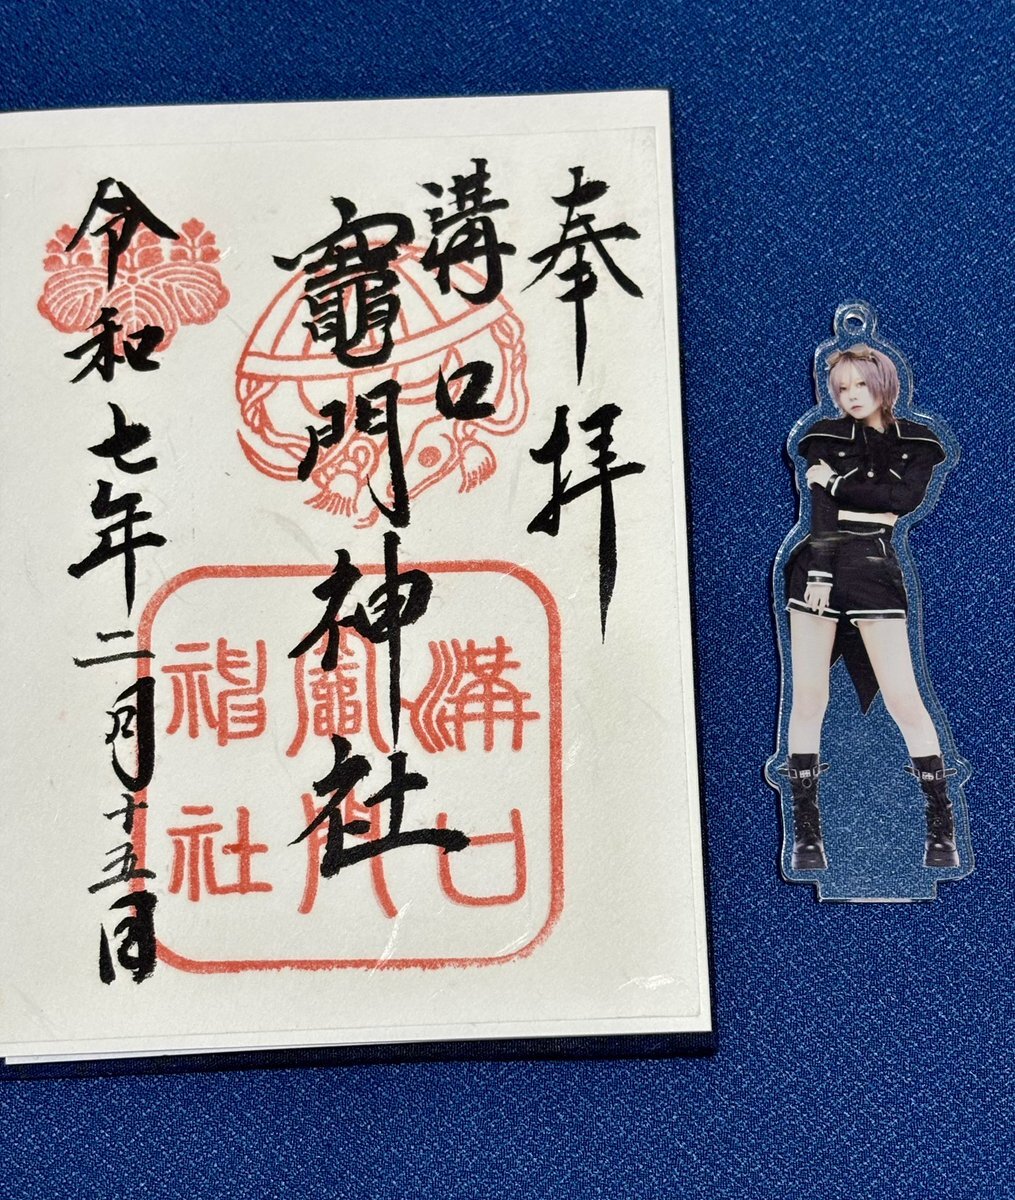 奉拝
溝口
竈門神社
令和七年二月十五日
溝口
竈門
神社